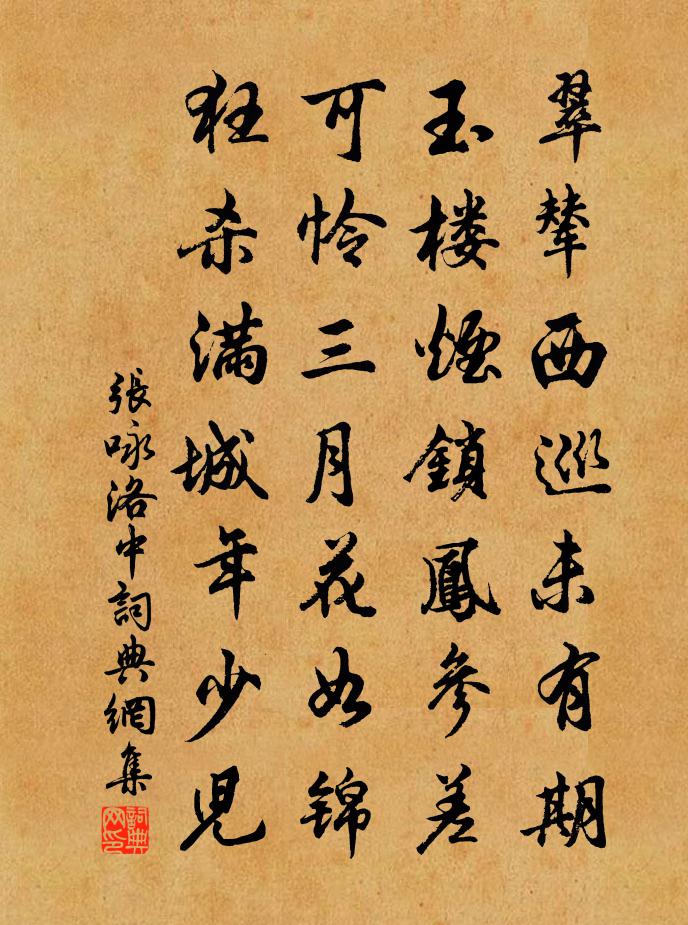 翠輦西巡未有期
玉楼煙鎖鳳參差
可怜三月花如錦
狂杀满城年少児
張咏洛中詞典網集
詞典
网印